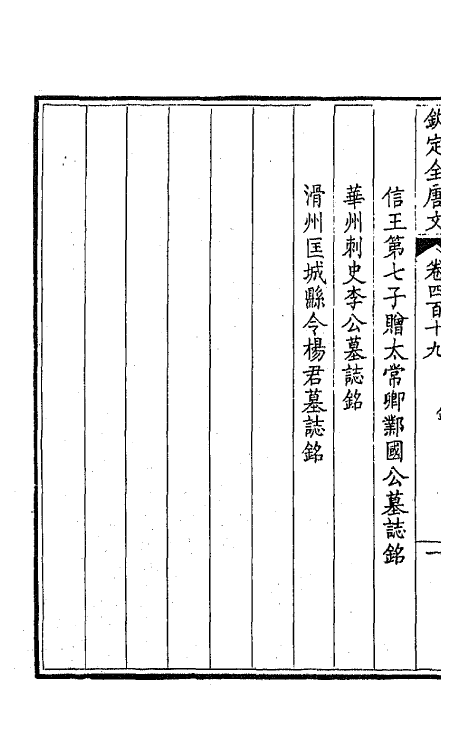 欽定全唐文 卷四百十九 一
信王第七子贈太常卿酆國公墓誌銘
華州刺史李公墓誌銘
滑州匡城縣令楊君墓誌銘